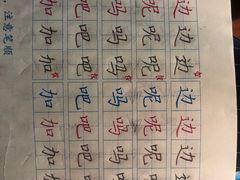 加 吧 吗 呢 边
加 吧 吗 呢 边
加 吧 吗 呢 边
加 吧 吗 呢 边
加 吧 吗 呢 边
加 吧 吗 呢 边
注意笔顺